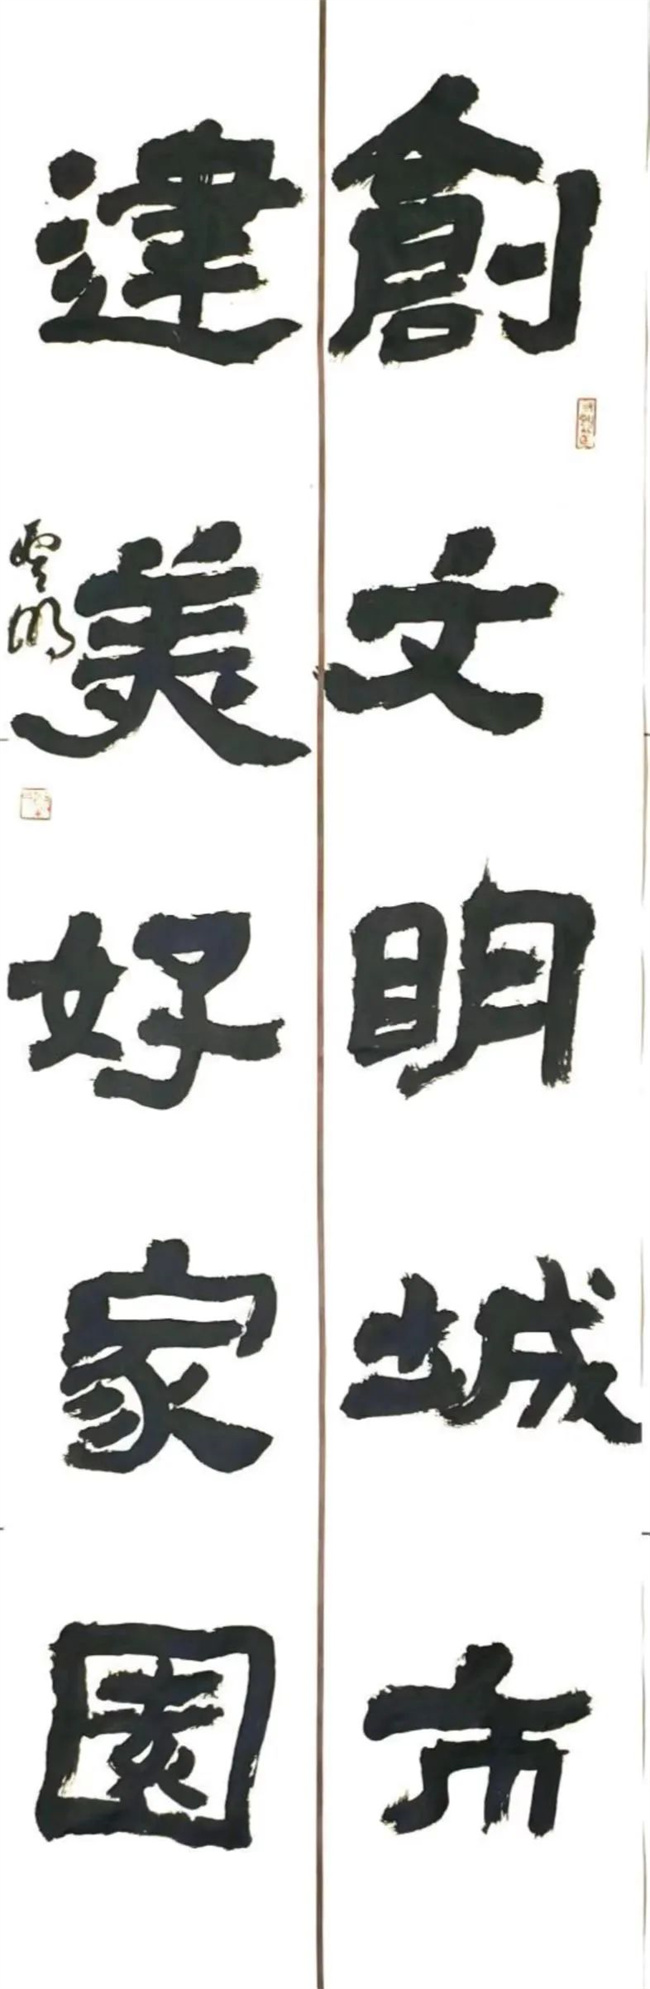 創文明城市
建美好家園
雲明